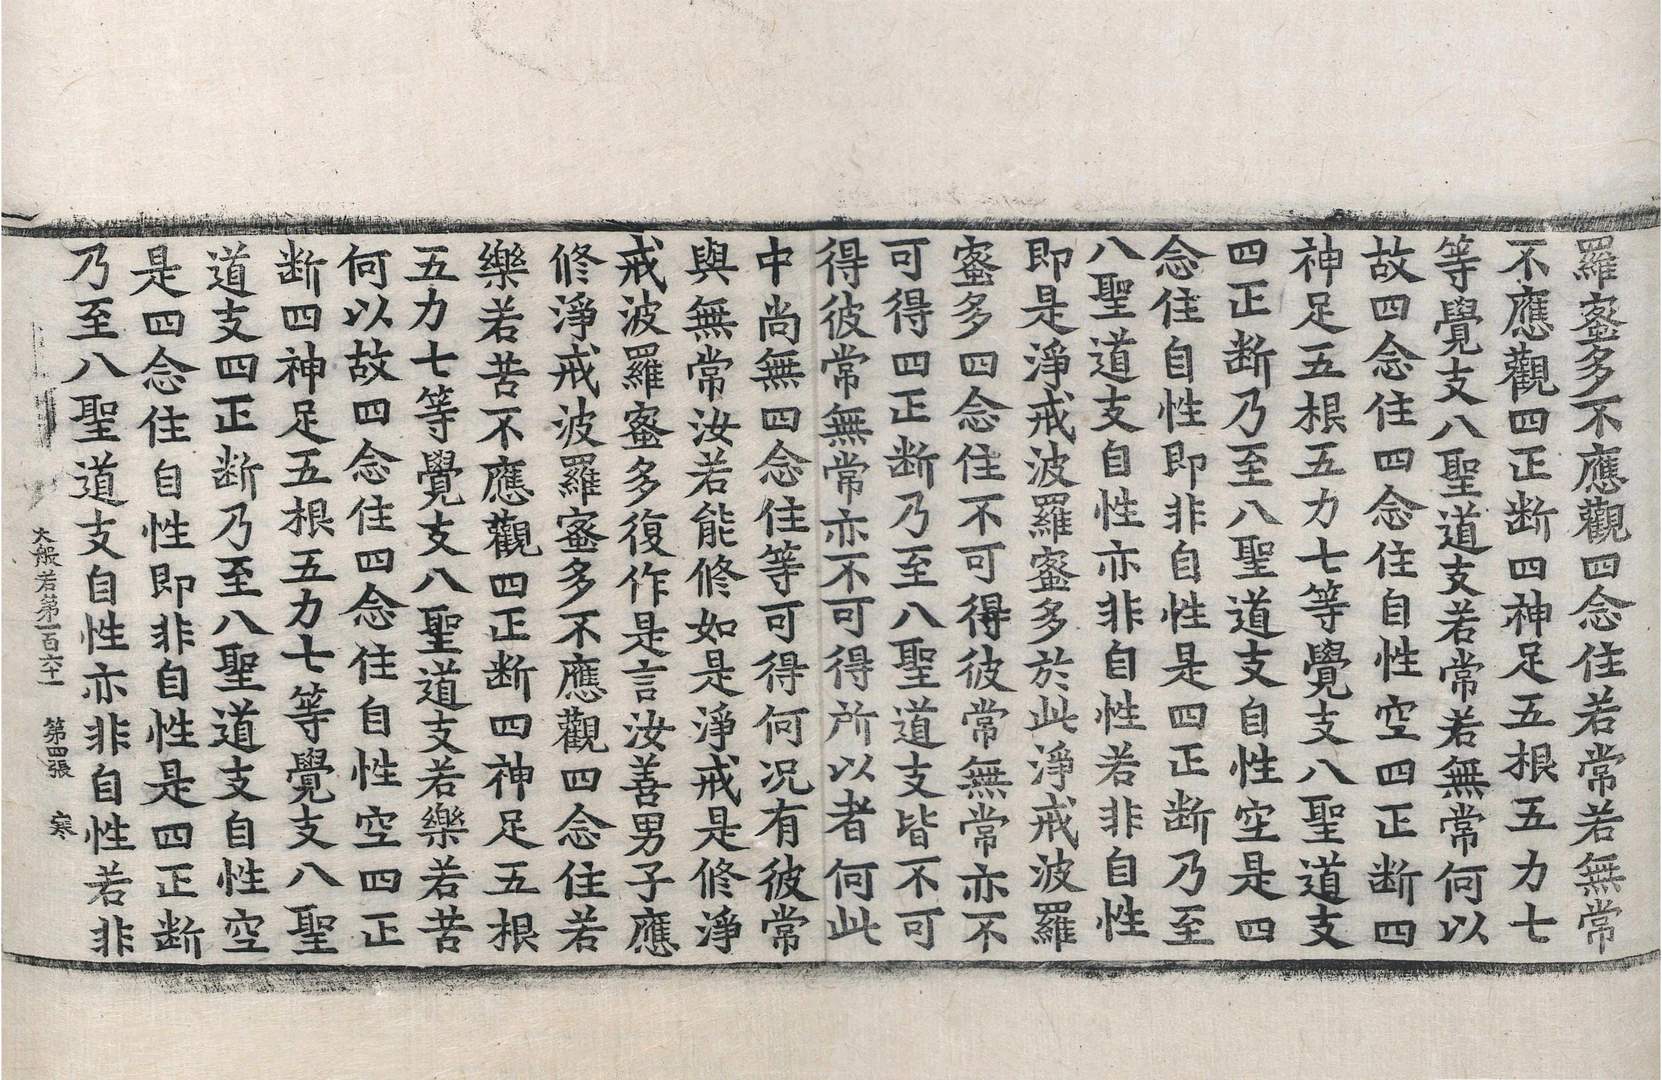 羅蜜多不應觀四念住若常若無常
不應觀四正断四神足五根五力七
等覺支八聖道支若常若無常何以
故四念住四念住自性空四正断四
神足五根五力七等覺支八聖道支
四正断乃至八聖道支自性空是四
念住自性即非自性是四正断乃至
八聖道支自性亦非自性若非自性
即是淨戒波羅蜜多於此淨戒波羅
蜜多四念住不可得彼常無常亦不
可得四正断乃至八聖道支皆不可
得彼常無常亦不可得所以者何此
中尚無四念住等可得何况有彼常
與無常汝若能修如是淨戒是修淨
戒波羅蜜多復作是言汝善男子應
修淨戒波羅蜜多不應觀四念住若
樂若苦不應觀四正断四神足五根
五力七等覺支八聖道支若樂若苦
何以故四念住四念住自性空四正
断四神足五根五力七等覺支八聖
道支四正断乃至八聖道支自性空
是四念住自性即非自性是四正断
乃至八聖道支自性亦非自性若非
大般若第一百六十一 第四張 寒